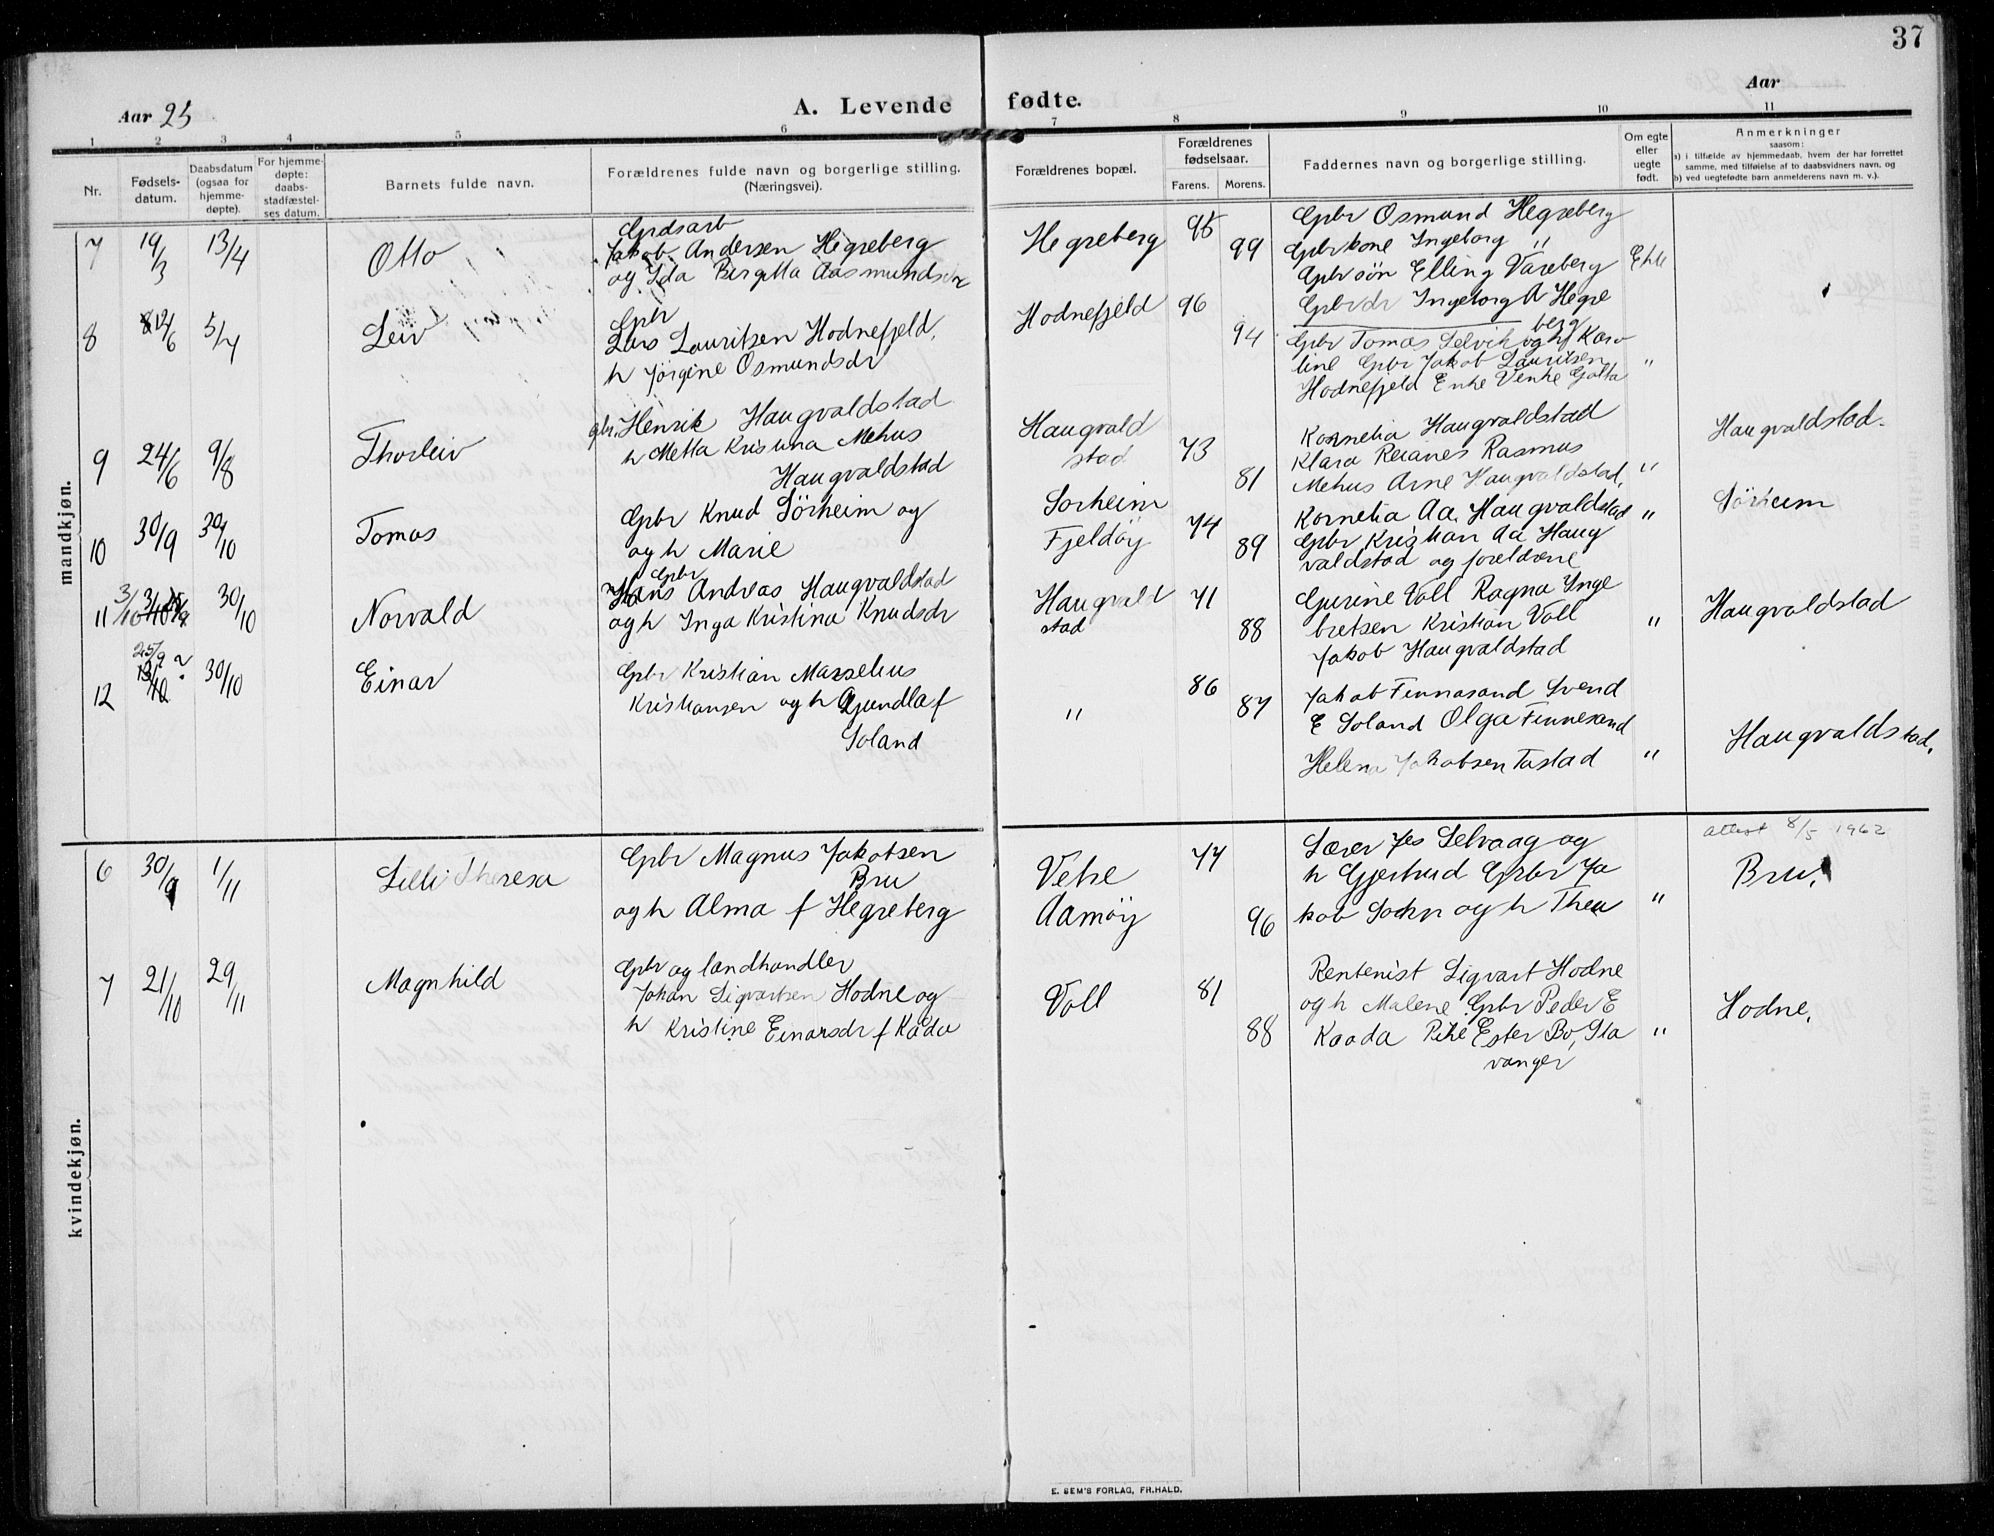 37
Aar 25
A. Levende fødte.
Aar
1 2 3 4 5 6 7 8 9 10 11
Nr.
Fødsels-
datum.
Daabsdatum
(ogsaa for
hjemme-
døpte).
For hjemme-
døpte:
daabs-
stadfæstel-
ses datum.
Barnets fulde navn.
Forældrenes fulde navn og borgerlige stilling.
(Næringsvei).
Forældrenes bopæl.
Forældrenes
fødselsaar.
Farens. Morens.
Faddernes navn og borgerlige stilling.
Om egte
eller
uegte
født.
Anmerkninger
saasom:
a) i tilfælde av hjemmedaab, hvem der har forrettet
samme, med tilføielse af to daabsvidners navn, og
b) ved uegtefødte barn anmelderens navn m. v.).
mandkjøn.
7 19/3 13/4 Otto
Grdsarb
Jakob Andersen Hegreberg
og Ida Birgitta Aasmundsen
Hegreberg 95 99
Gpbr Osmund Hegreberg
Gpbr kone Ingeborg "
Gpbr søn Elling Vareberg
Gpbr dr Ingeborg A Hegre
berg
Ekte
8 12/6 5/7 Leiv
Gpbr
Lars Lauritsen Hodnefjeld.
h Jørgine Osmundsdr
Hodnefjeld 96 94
Gpbr Tomas Selvik og h Karo
line Gpbr Jakob Lauritsen
Hodnefjeld Enke Venke Galta
"
9 24/6 9/8 Thorleiv
gbr. Henrik Haugvaldstad
h Metta Kristina Mehus
Haugvaldstad
Haugvald
stad
73 81
Kornelia Haugvaldstad
Klara Reianes Rasmus
Mehus Arne Haugvaldstad,
"
Haugvaldstad.
10 30/9 30/10 Tomas
Gpbr Knud Sörheim og
og h Marie
Sorheim
Fjeldöy
74 89
Kornelia Aa. Haugvaldstad
Gpbr Kristian Aa Haug
valdstad og forældrene
"
Sörheim
11 3/10 30/10 Norvald
Gpbr
Hans Andreas Haugvaldstad
og h Inga Kristina Knudsdr
Haugvald
stad
71 88
Gurine Voll Ragna Inge
bretsen Kristian Voll
Jakob Haugvaldstad
"
Haugvaldstad
12 25/9 ? 30/10 Einar
Gpbr Kristian Marselius
Kristiansen og h Gundla f
Soland
" 86 87
Jakob Finnasand Svend
E Soland Olga Finnesand
Helena Jakobsen Tastad
"
Haugvaldstad.
kvindekjøn.
6 30/9 1/11 Lilli Theresa
Gpbr Magnus Jakobsen
Bru
og h Alma f Hegreberg
Vestre
Aamöy
77 96
Lærer Jes Selvaag og
h Gjertrud Gpbr Ja
kob Sokn og h Thea
"
attest 8/5 1962
Bru.
7 21/10 29/11 Magnhild
Gpbr og landhandler
Johan Sigvartsen Hodne og
h Kristine Einarsdr f Kåda
Voll 81 88
Rentenist Sigvart Hodne
og h Malene Gpbr Peder E
Kaada Pike Ester Bo, Sta
vanger
"
Hodne.
E. SEM'S FORLAG, FR.HALD.